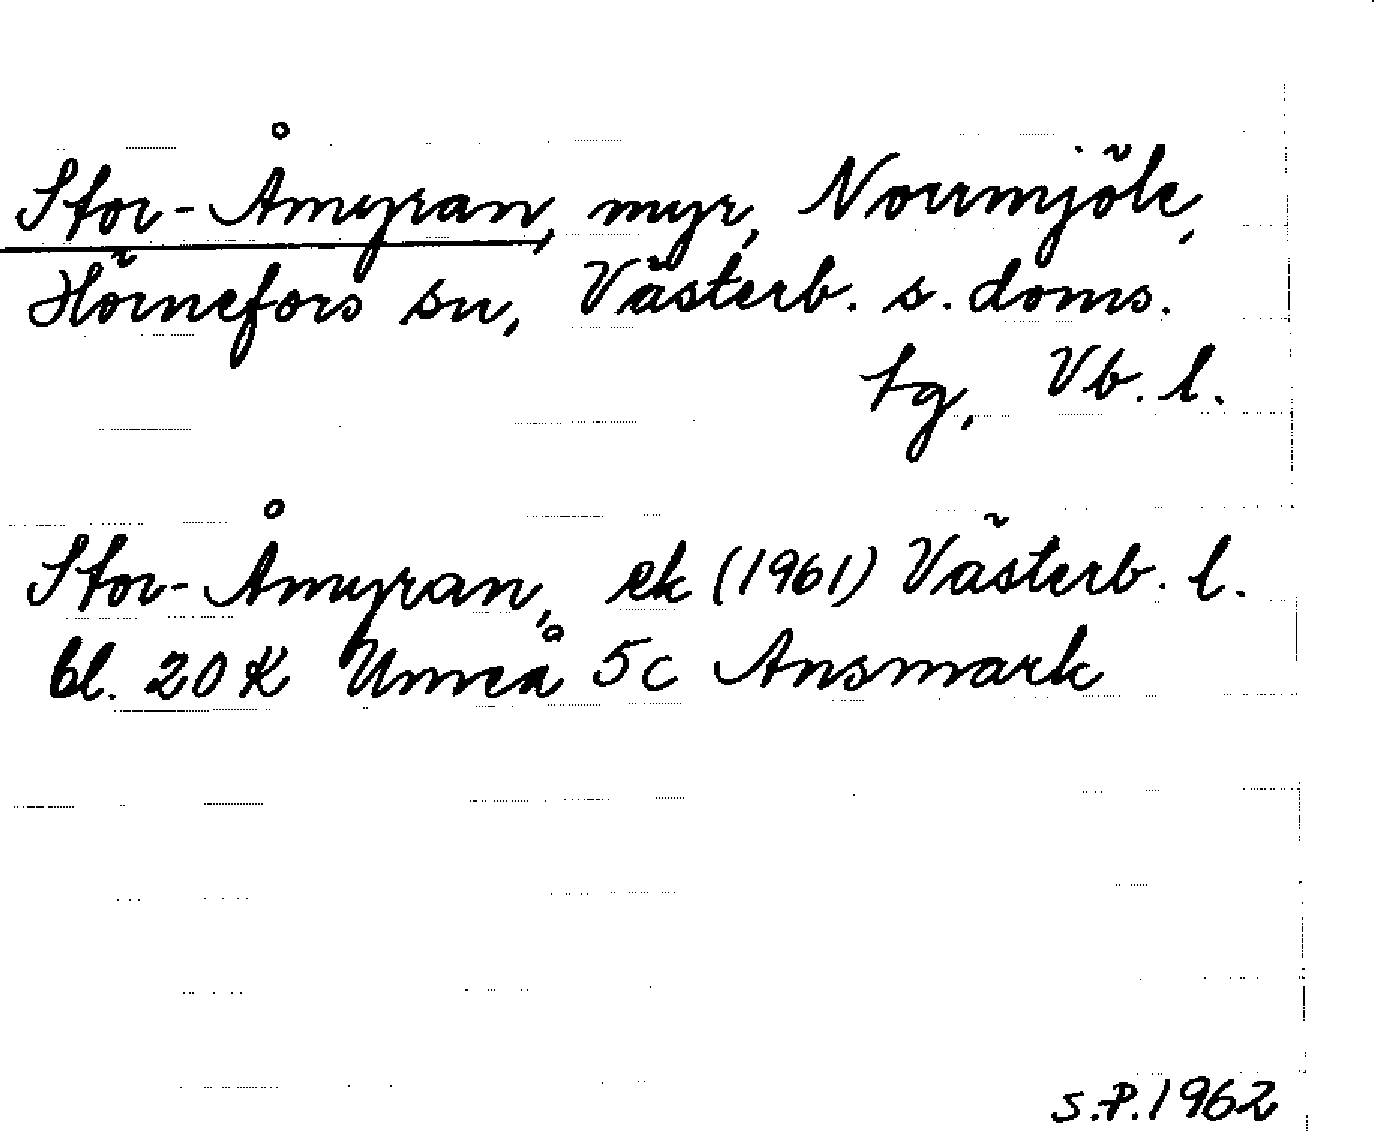 Stor-Åmyran, myr, Norrmjöle,
Hörnefors sn, Västerb. s. doms.
tg, Vb. l.
Stor-Åmyran, ek (1961) Västerb. l.
bl. 20 K Umeå 5c Ansmark
S.P. 1962